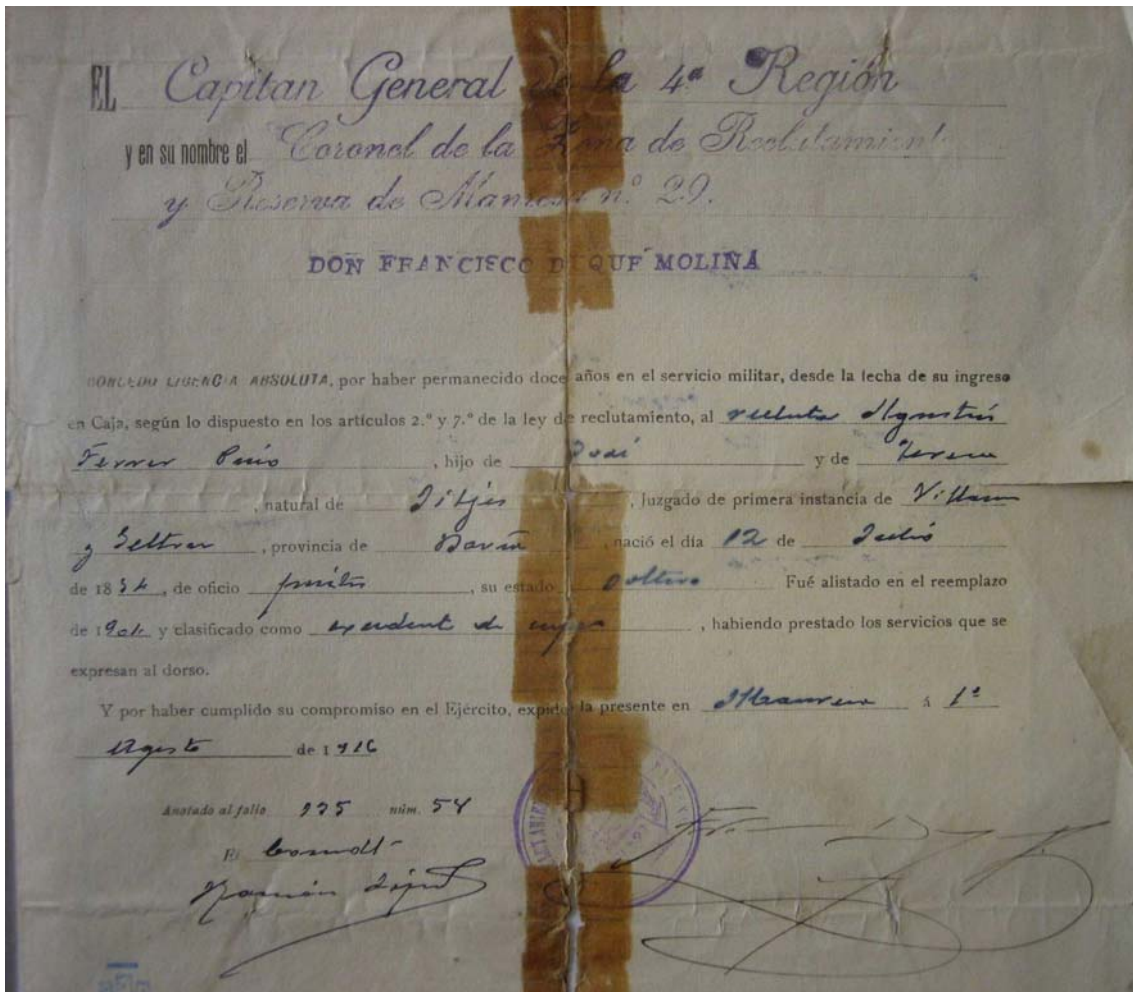 EL Capitan General de la 4ª Región
y en su nombre el Coronel de la Zona de Reclutamient
y Reserva de Manresa nº 29.
DON FRANCISCO DUQUÉ MOLINA
CONCEDO LICENCIA ABSOLUTA, por haber permanecido doce años en el servicio militar, desde la fecha de su ingreso
en Caja, según lo dispuesto en los artículos 2.º y 7.º de la ley de reclutamiento, al recluta Agustín
Ferrer , hijo de José y de Teresa
, natural de Sitjes , Juzgado de primera instancia de
y Geltrú , provincia de , nació el día 12 de Julio
de 18 , de oficio , su estado soltero Fué alistado en el reemplazo
de 190 y clasificado como excedente de cupo , habiendo prestado los servicios que se
expresan al dorso.
Y por haber cumplido su compromiso en el Ejército, expido la presente en Manresa á 1º
Agosto de 1916
Anotado al folio 235 núm. 54
El Comdte
Ramón